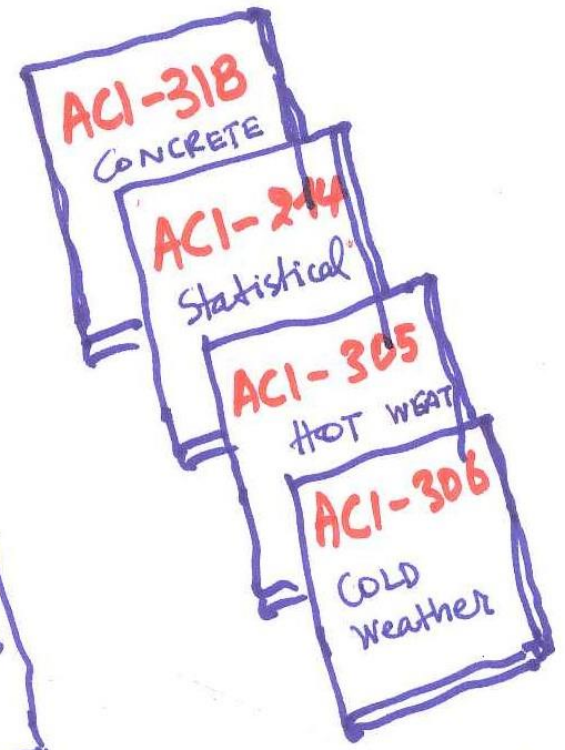 ACI-318
CONCRETE
ACI-214
Statistical
ACI-305
HOT WEAT
ACI-306
COLD
Weather